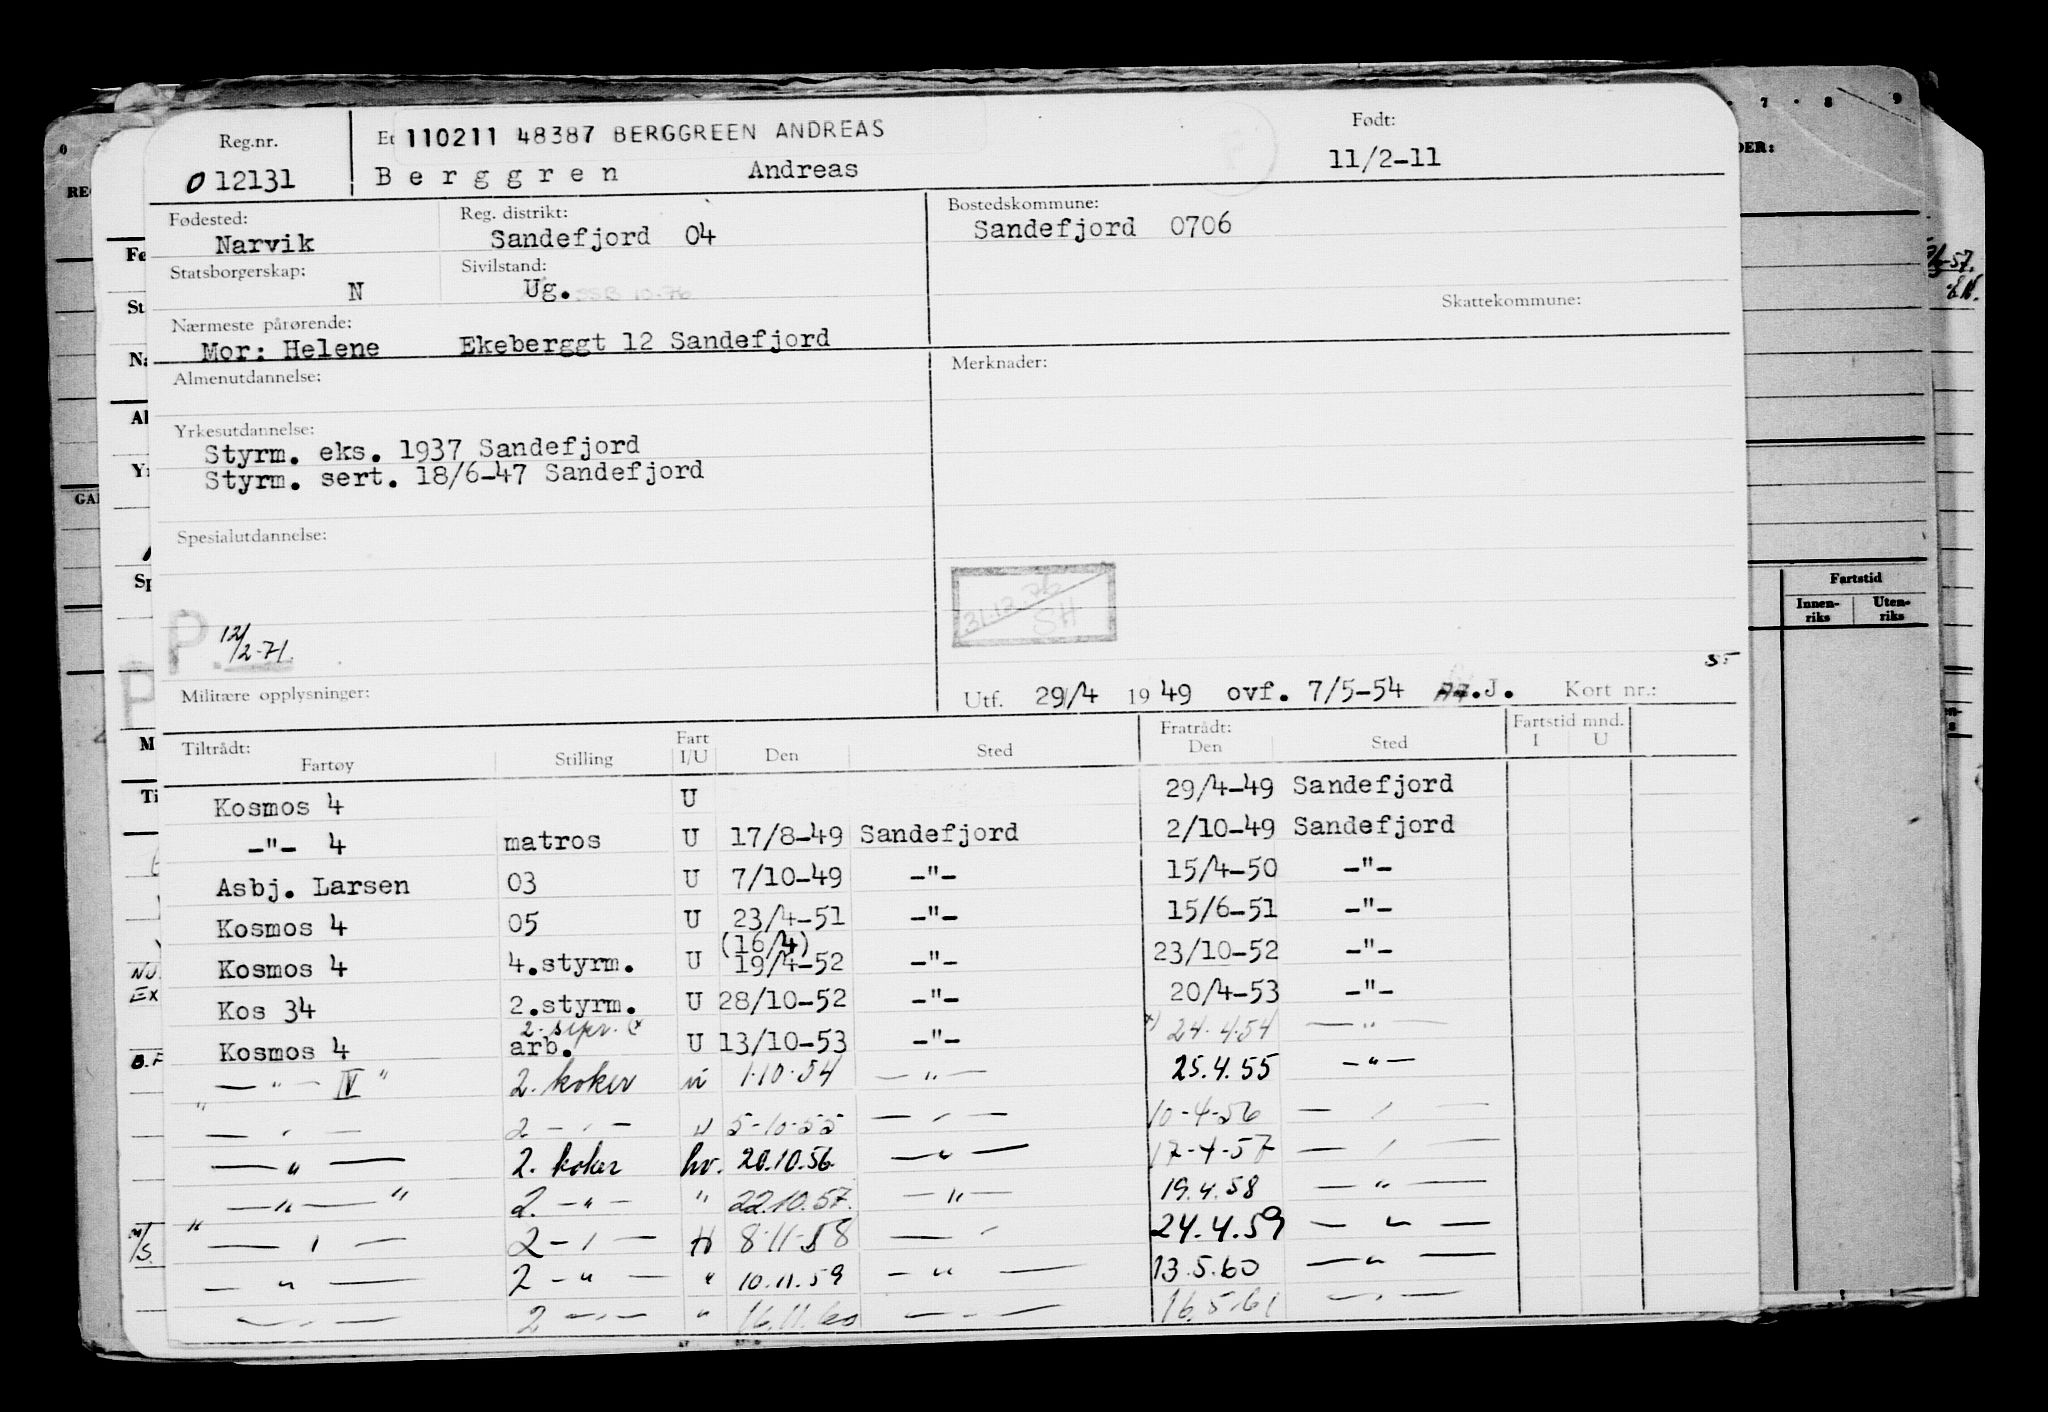 7 · 8 9
Reg.nr. 110211 48387 BERGGREEN ANDREAS Født:
O 12131 Berggren Andreas 11/2-11
Fødested: Reg. distrikt: Bostedskommune:
Narvik Sandefjord 04 Sandefjord 0706
Statsborgerskap: Sivilstand:
N Ug. Skattekommune:
Nærmeste pårørende:
Mor: Helene Ekeberggt 12 Sandefjord
Almenutdannelse: Merknader:
Yrkesutdannelse:
Styrm. eks. 1937 Sandefjord
Styrm. sert. 18/6-47 Sandefjord
Spesialutdannelse:
31.12.76
SH
P. 12/2-71.
Militære opplysninger: Utf. 29/4 1949 ovf. 7/5-54 J. Kort nr.:
Tiltrådt: Fart Fratrådt: Fartstid mnd.
Fartøy Stilling I/U Den Sted Den Sted I U
Kosmos 4 U 29/4-49 Sandefjord
-"- 4 matros U 17/8-49 Sandefjord 2/10-49 Sandefjord
Asbj. Larsen 03 U 7/10-49 -"- 15/4-50 -"-
Kosmos 4 05 U 23/4-51 -"- 15/6-51 -"-
(16/4)
Kosmos 4 4.styrm. U 19/4-52 -"- 23/10-52 -"-
Kos 34 2.styrm. U 28/10-52 -"- 20/4-53 -"-
Kosmos 4 arb. U 13/10-53 -"- x) 24.4.54 -"-
-"- IV " 2. koker 1.10.54 -"- 25.4.55 -"-
" -"- 2 -"- 5-10-55 -"- 10-4-56 -"-
-"- 2. koker hv. 20.10.56. -"- 17-4-57 -"-
-"- " 2. -"- " 22.10.57. -"- 19.4.58 -"-
" -"- 2 -"- H 8-11-58 -"- 24.4.59 -"-
-"- 2 -"- " 10.11.59 -"- 13.5.60 -"-
-"- 2 -"- " 16.11.60 -"- 16.5.61 -"-
Fartstid
Innen-riks Uten-riks